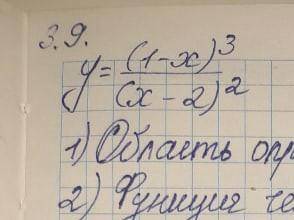 3.9.
y = (1-x)^3 / (x-2)^2
1) Область опр
2) Функция че